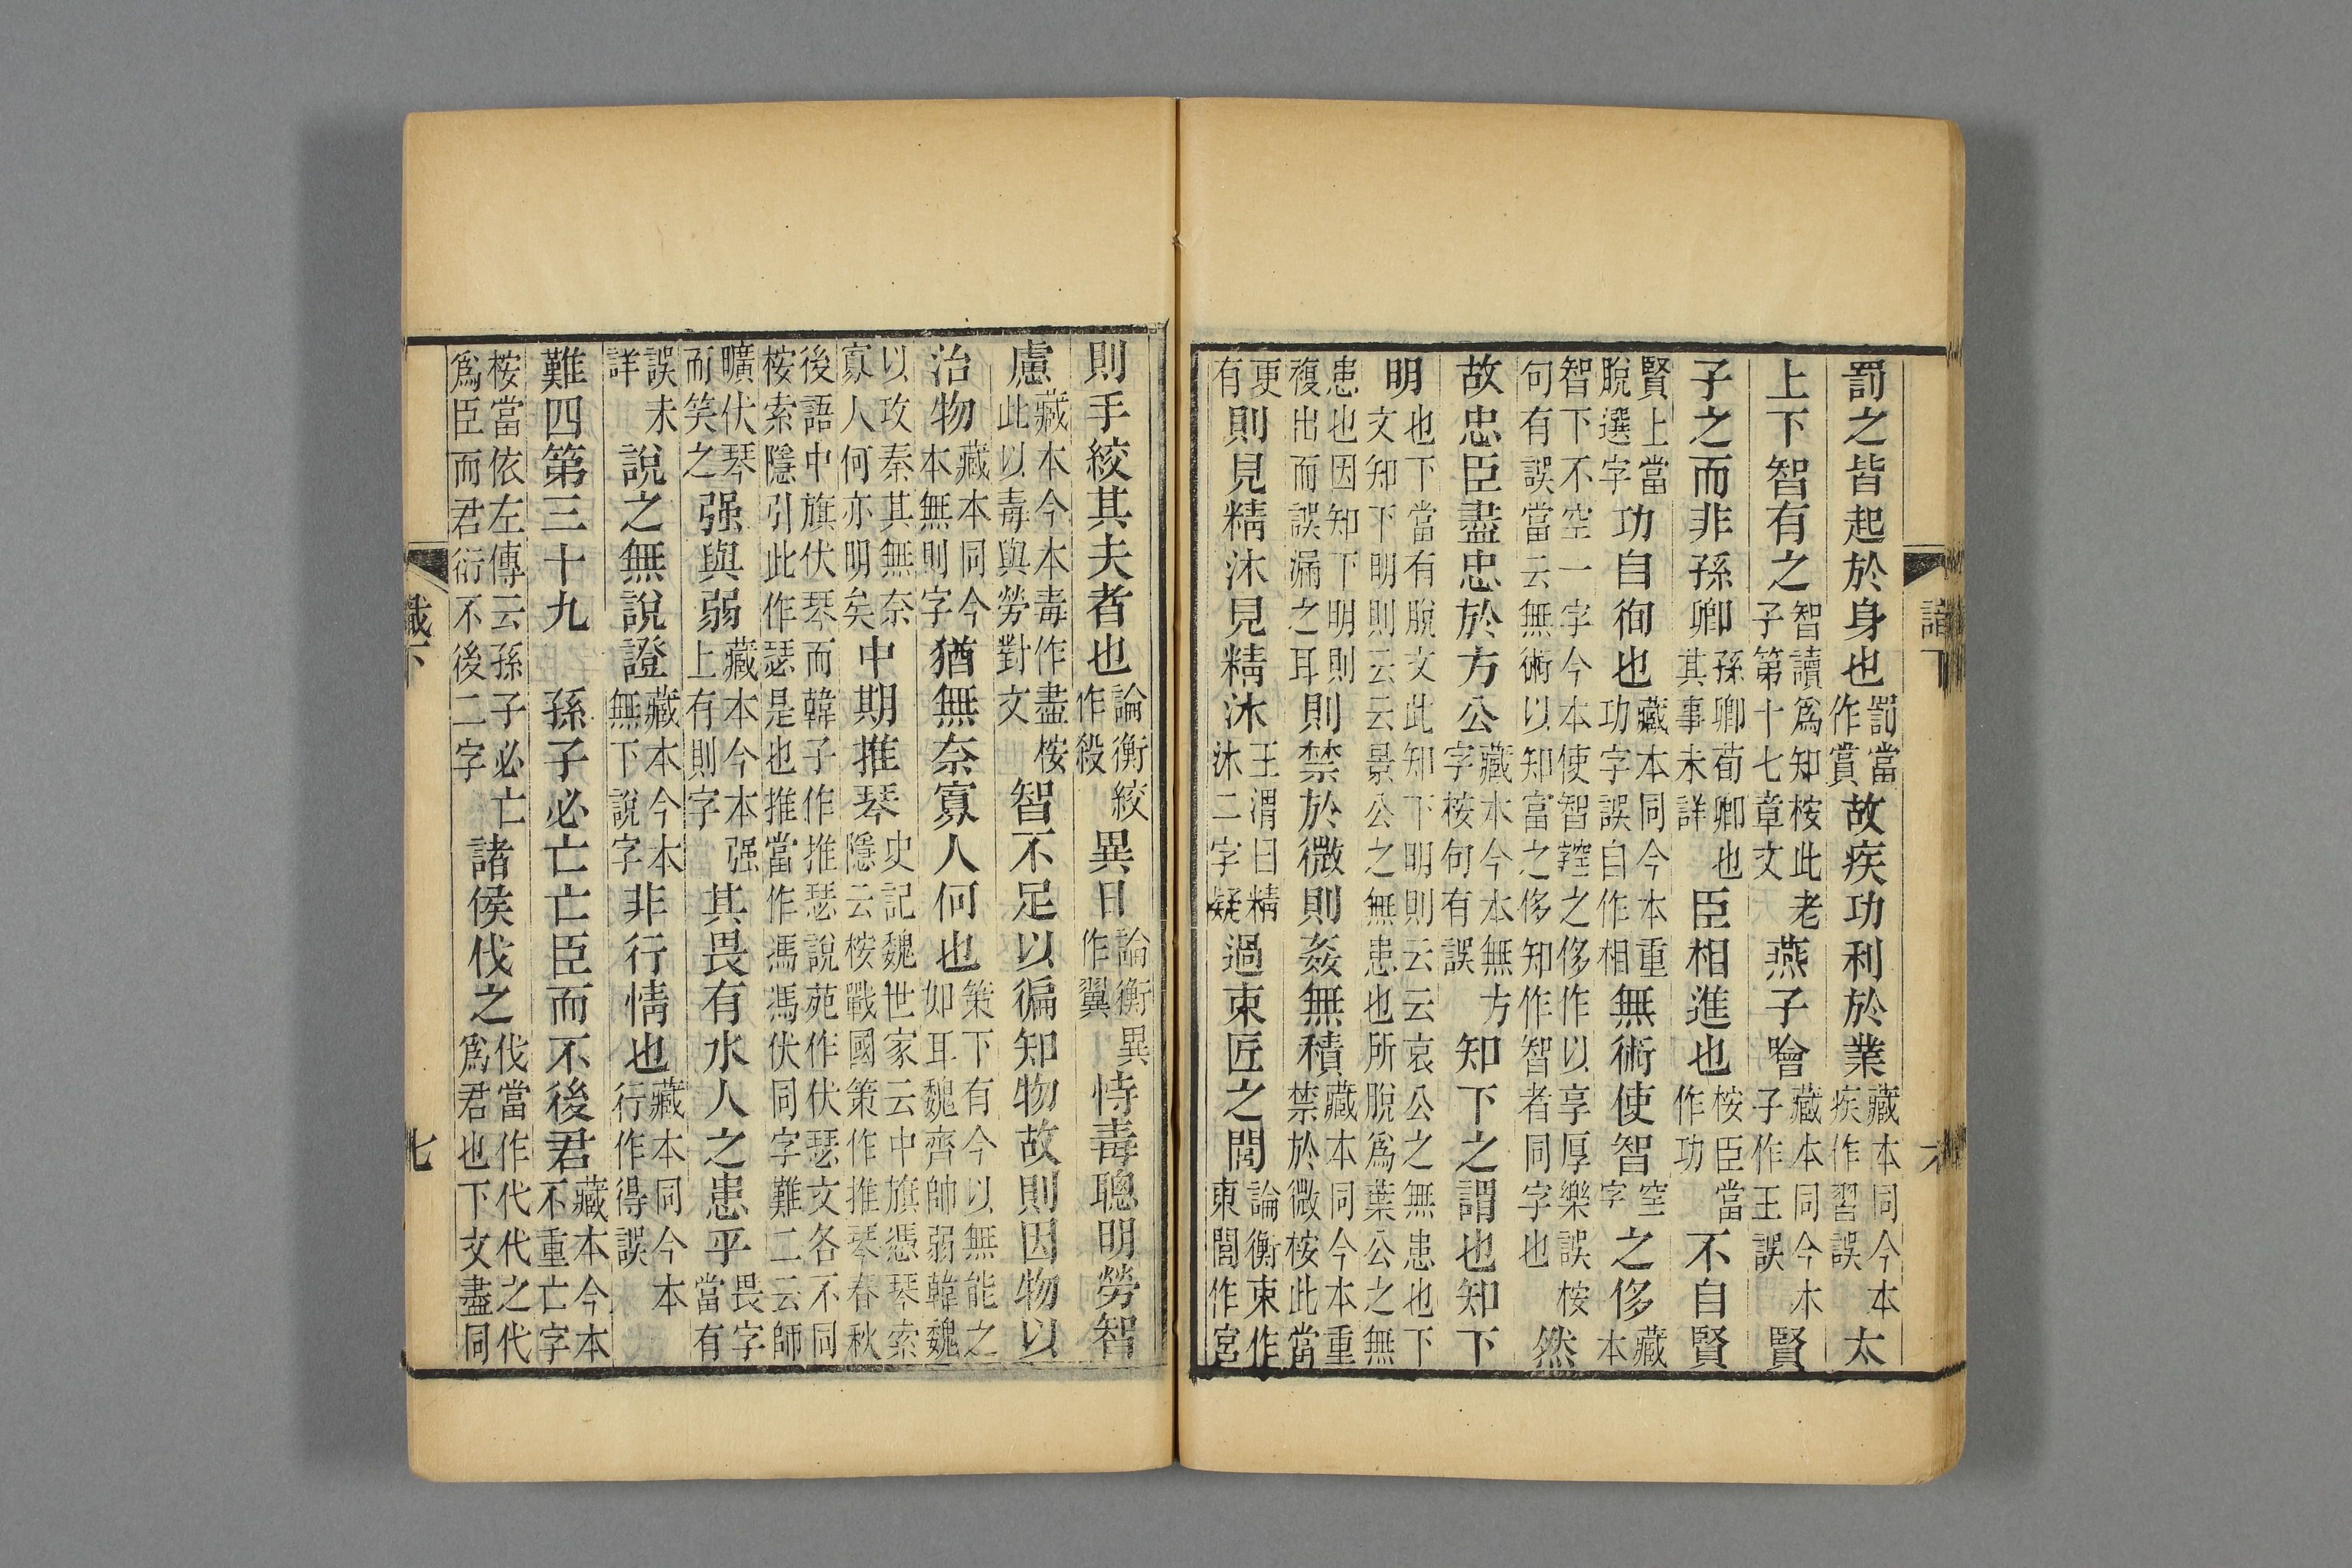 罰之皆起於身也罰當作賞故疾功利於業藏本同今本疾作習誤太
上下智有之智讀爲知桉此老子第十七章文燕子噲藏本同今本子作王誤賢
子之而非孫卿孫卿荀卿也其事未詳臣相進也桉臣當作功不自賢
賢上當脫選字功自徇也藏本同今本重功字誤自作相無術使智空字之侈藏本
智下不空一字今本使智之侈作以享厚樂誤桉句有誤當云無術以知富之侈知作智者同字也然
故忠臣盡忠於方公藏本今本無方字桉句有誤知下之謂也知下
明也下當有脫文此知下明則云云哀公之無患也下文知下明則云云景公之無患也所脫爲葉公之無
患也因知下明則複出而誤漏之耳則禁於微則姦無積藏本同今本重禁於微桉此當
更有則見精沐見精沐王渭曰精沐二字疑過束匠之閭論衡束作東閭作宮
則手絞其夫者也論衡絞作殺異日論衡異作翼恃毒聰明勞智
慮藏本今本毒作盡桉此以毒與勞對文智不足以徧知物故則因物以
治物藏本同今本無則字猶無奈寡人何也策下有今以無能之如耳魏齊帥弱韓魏
以攻秦其無奈寡人何亦明矣中期推琴史記魏世家云中旗憑琴索隱云桉戰國策作推琴春秋
後語中旗伏琴而韓子作推瑟說苑作伏瑟文各不同桉索隱引此作瑟是也推當作馮馮伏同字難二云師
曠伏琴而笑之强與弱藏本今本强上有則字其畏有水人之患乎畏字當有
誤未詳說之無說證藏本今本無下說字非行情也藏本同今本行作得誤
難四第三十九　孫子必亡亡臣而不後君藏本今本不重亡字
桉當依左傳云孫子必亡爲臣而君衍不後二字諸侯伐之伐當作代代之代爲君也下文盡同
識下
七